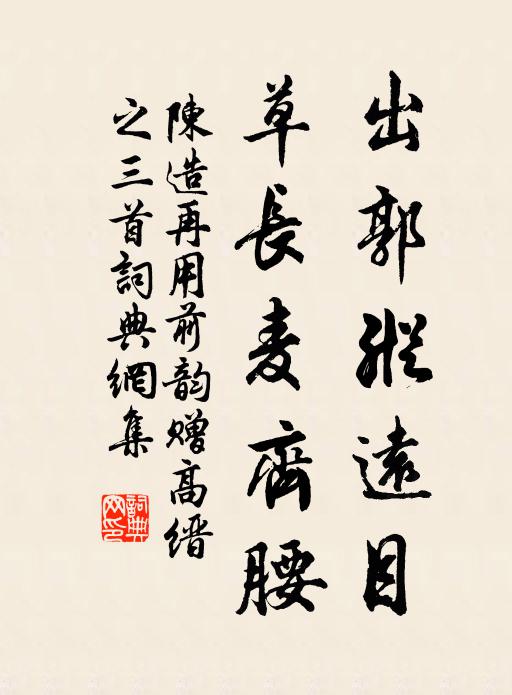 出郭縱遠目
草長麦齊腰
陳造再用前韵赠高缙
之三首詞典網集
詞典
网印